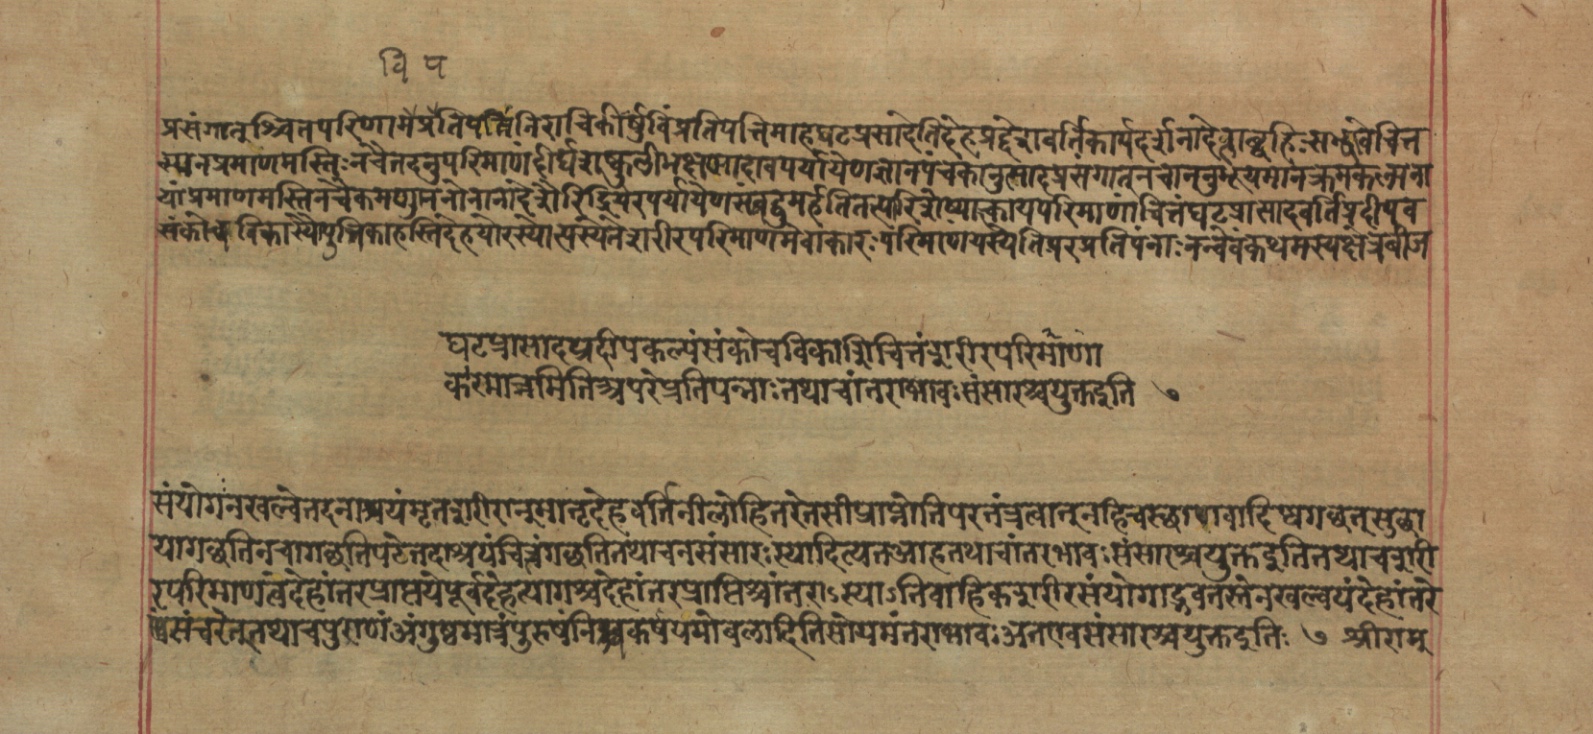 वि प
प्रसंगात्तुश्चित्तपरिणामे प्रतिपत्तिं निराचिकीर्षुर्विप्रतिपत्तिमाह घटप्रासादेति देहप्रदेशवर्तिकार्यदर्शनादेह
प्रमाणमस्तिः नचैतदनुपरिमाणं दीर्घशष्कुलीभक्षणादावपर्यायेण ज्ञानपंचकानुत्पादप्रसंगात् नचाननुभूयमानक्रमकल्पना
यां प्रमाणमस्ति नचैकमणुमनोनानादेशैरिंद्रियैरपर्यायेण संबद्धुमर्हति तत्पारिशेष्यात्कायपरिमाणं चित्तं घटप्रासादवर्तिप्रदीपव
संकोचविकासौ पुत्तिकाहस्तिदेहयोरस्योत्पत्स्येते शरीरपरिमाणमेवाकारः परिमाणं यस्येति अपरे प्रतिपंनाः नन्वेवं कथमस्य क्षेत्रबीज
घटप्रासादप्रदीपकल्पं संकोचविकाशि चित्तं शरीरपरिमाणा
कारमात्रमिति अपरे प्रतिपन्नाः तथा चांतराभावः संसारश्च युक्त इति ७
संयोगः न खल्वेतदनाश्रयं मृतशरीरान्मातृदेहवर्तिनी लोहितरेतसी प्राप्नोति परतंत्रत्वात् न हि
यागछति न चागछति पटे तदाश्रयं चित्रं गछति तथा च न संसारः स्यादित्यत आह तथा चांतरभावः संसारश्च युक्त इति तथा च शरी
रपरिमाणत्वे देहांतरप्राप्तये पूर्वदेहत्यागश्च देहांतरप्राप्तिश्चांतराऽस्याऽतिवाहिकशरीरसंयोगाद्भवतस्तेन खल्वयं देहांतरे
संचरेत् तथा च पुराणं अंगुष्ठमात्रं पुरुषं निश्चकर्ष यमो बलादिति सोयमंतराभावः अत एव संसारश्च युक्त इतिः ७ श्रीराम